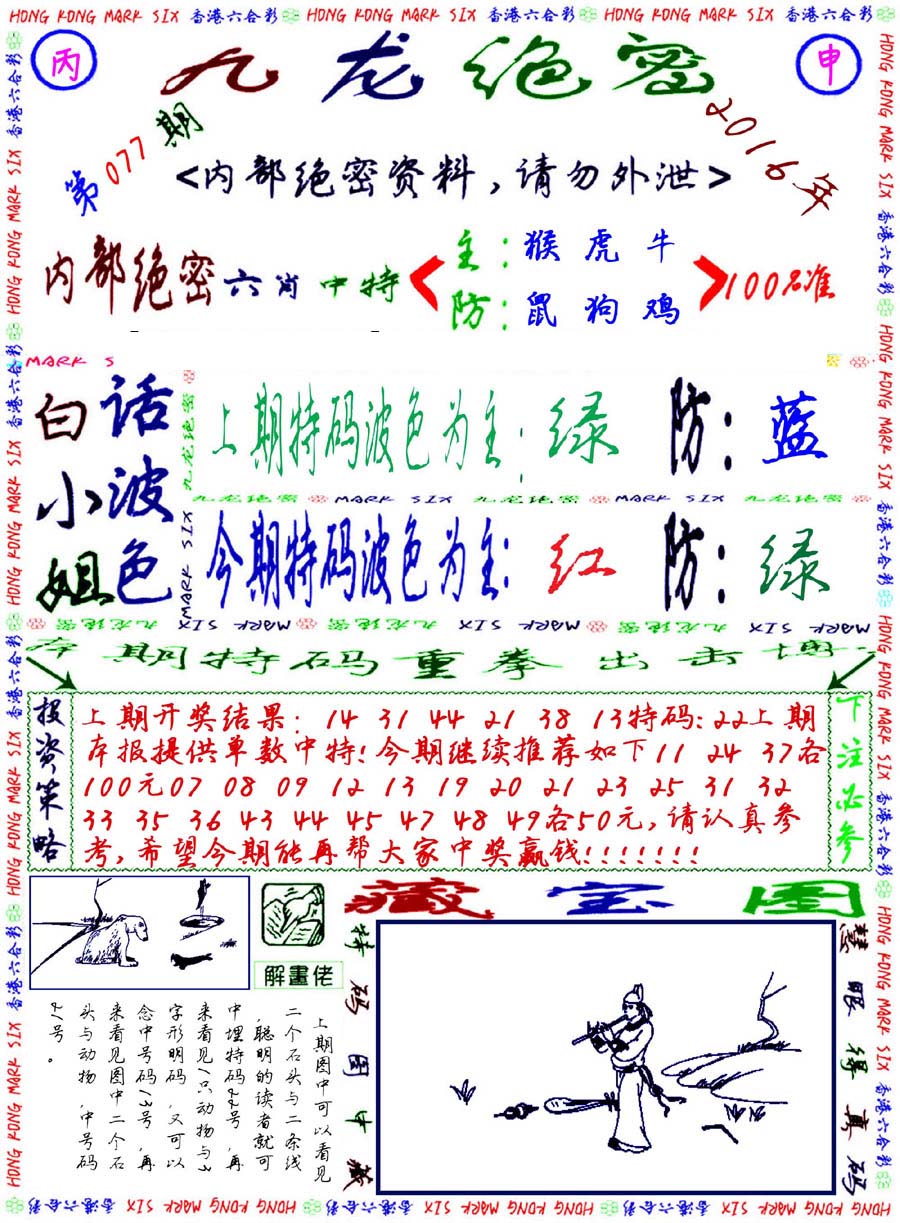 HONG KONG MARK SIX 香港六合彩 HONG KONG MARK SIX 香港六合彩 HONG KONG MARK SIX 香港六合彩
丙
九龙绝密
申
第077期
2016年
<内部绝密资料,请勿外泄>
内部绝密六肖中特
主:猴虎牛
防:鼠狗鸡
100%准
MARK S
白话
小波
姐色
上期特码波色为主:绿 防:蓝
九龙绝密 MARK SIX 九龙绝密 MARK SIX 九龙绝密
今期特码波色为主:红 防:绿
九龙绝密
MARK SIX
MARK SIX 九龙绝密 MARK SIX 九龙绝密 MARK SIX 九龙绝密
期特码重拳出击
投资策略
上期开奖结果: 14 31 44 21 38 13特码:22上期
本报提供单数中特!今期继续推荐如下11 24 37各
100元07 08 09 12 13 19 20 21 23 25 31 32
33 35 36 43 44 45 47 48 49各50元,请认真参
考,希望今期能再帮大家中奖赢钱!!!!!!!
下注必参
解畫佬
藏宝图
特码图中藏
慧眼得真码
上期图中可以看见
二个石头与二条线
,聪明的读者就可
中埋特码22号,再
来看见1只动物与3
字形明码,又可以
念中号码13号,再
来看见图中二个石
头与动物,中号码
21号。
HONG KONG MARK SIX 香港六合彩 HONG KONG MARK SIX 香港六合彩 HONG KONG MARK SIX 香港六合彩